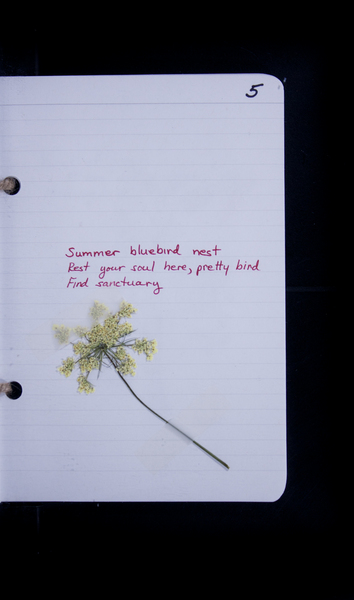 5
Summer bluebird nest
Rest your soul here, pretty bird
Find sanctuary